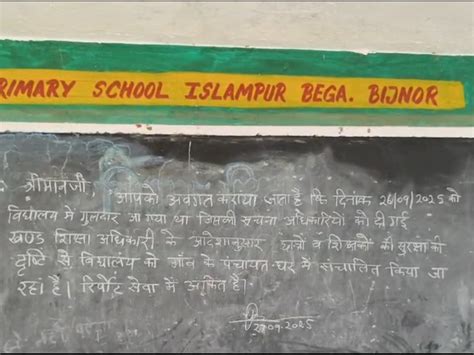 RIMARY SCHOOL ISLAMPUR BEGA. BIJNOR
श्रीमानजी,
आपको अवगत कराया जाता है कि दिनांक 26/09/2025 को
विद्यालय में गुलदार आ गया था जिसकी सूचना अधिकारियों को दी गई
खण्ड शिक्षा अधिकारी के आदेशानुसार छात्रों व शिक्षकों की सुरक्षा की
दृष्टि से विद्यालय को गाँव के पंचायत-घर में संचालित किया जा
रहा है। रिपोर्ट सेवा में अंकित है।
09.2025